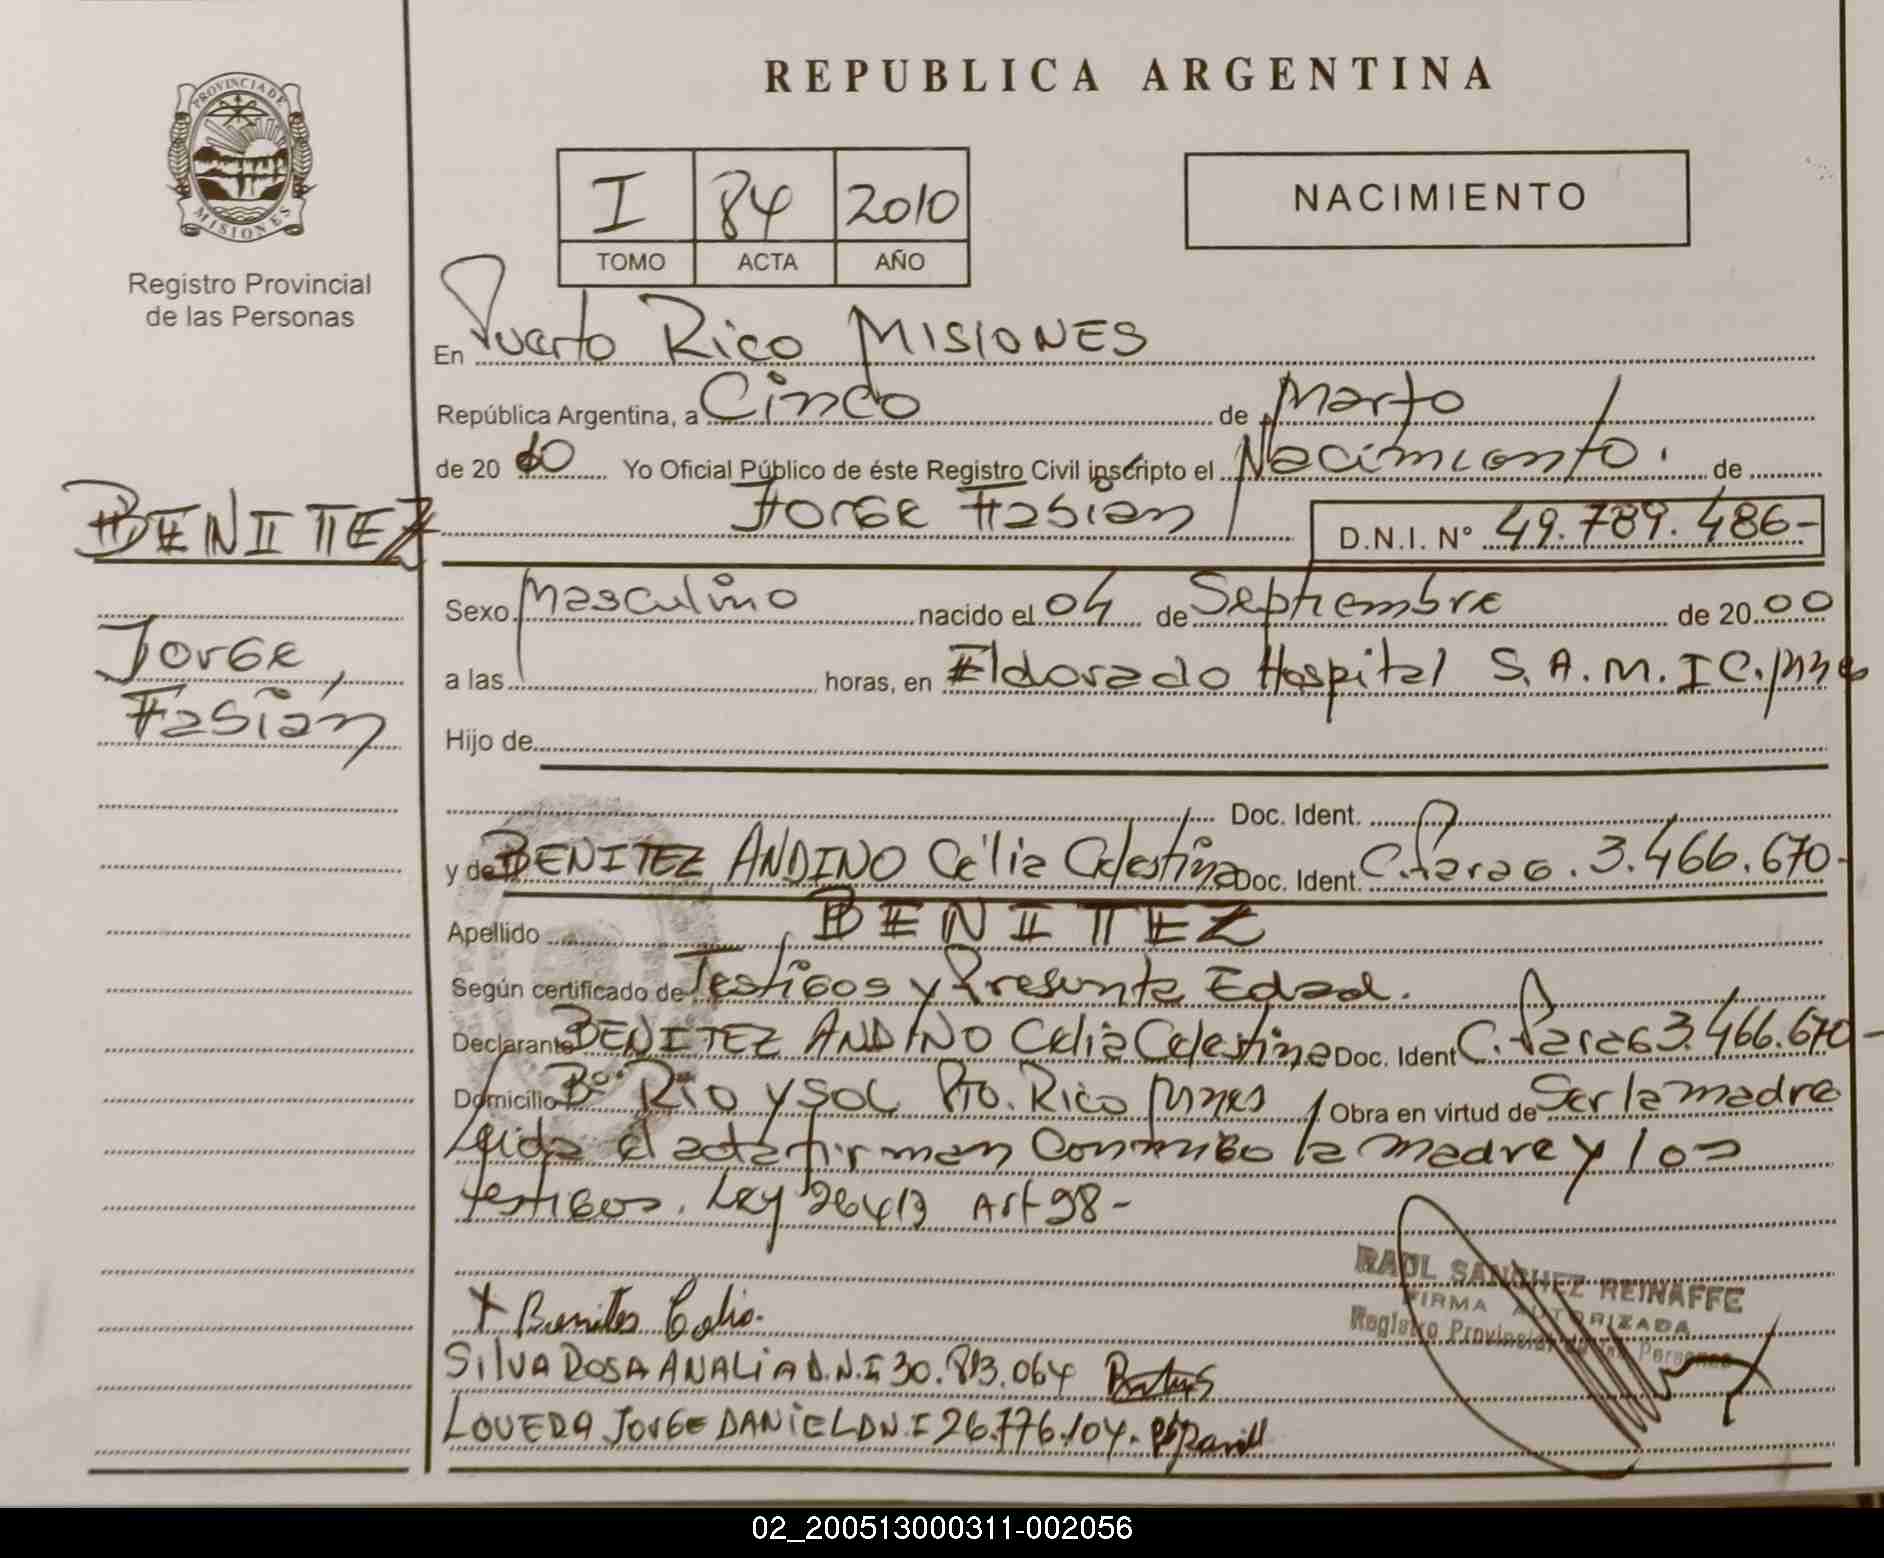 REPUBLICA ARGENTINA
PROVINCIA DE
MISIONES
Registro Provincial
de las Personas
I 84 2010
TOMO ACTA AÑO
NACIMIENTO
En Puerto Rico MISIONES
República Argentina, a Cinco de Marzo
de 20 10 Yo Oficial Público de éste Registro Civil inscripto el Nacimiento. de
Jorge Fabian D.N.I. N° 49.789.486-
BENITEZ
Jorge,
Fabián
Sexo Masculino nacido el 04 de Septiembre de 20 00
a las horas, en Eldorado Hospital S.A.M.IC.
Hijo de
Doc. Ident.
y de BENITEZ ANDINO Celia Celestina Doc. Ident. C. Parag. 3.466.670-
Apellido BENITEZ
Según certificado de Testigos y Presunta Edad.
Declarante BENITEZ ANDINO Celia Celestina Doc. Ident C. Parag 3.466.670-
Domicilio B° Rio y SOL Pto. Rico Mnes Obra en virtud de Ser la madre
Leida el acta firman conmigo la madre y los
testigos. Ley 26413 Art 98-
+ Benites Celia.
SILVA ROSA ANALIA D.N.I 30.813.064
LOVERA JORGE DANIEL DN.I 26.776.104.
RAUL SANCHEZ REINAFFE
FIRMA AUTORIZADA
Registro Provincial de las Personas
02_200513000311-002056